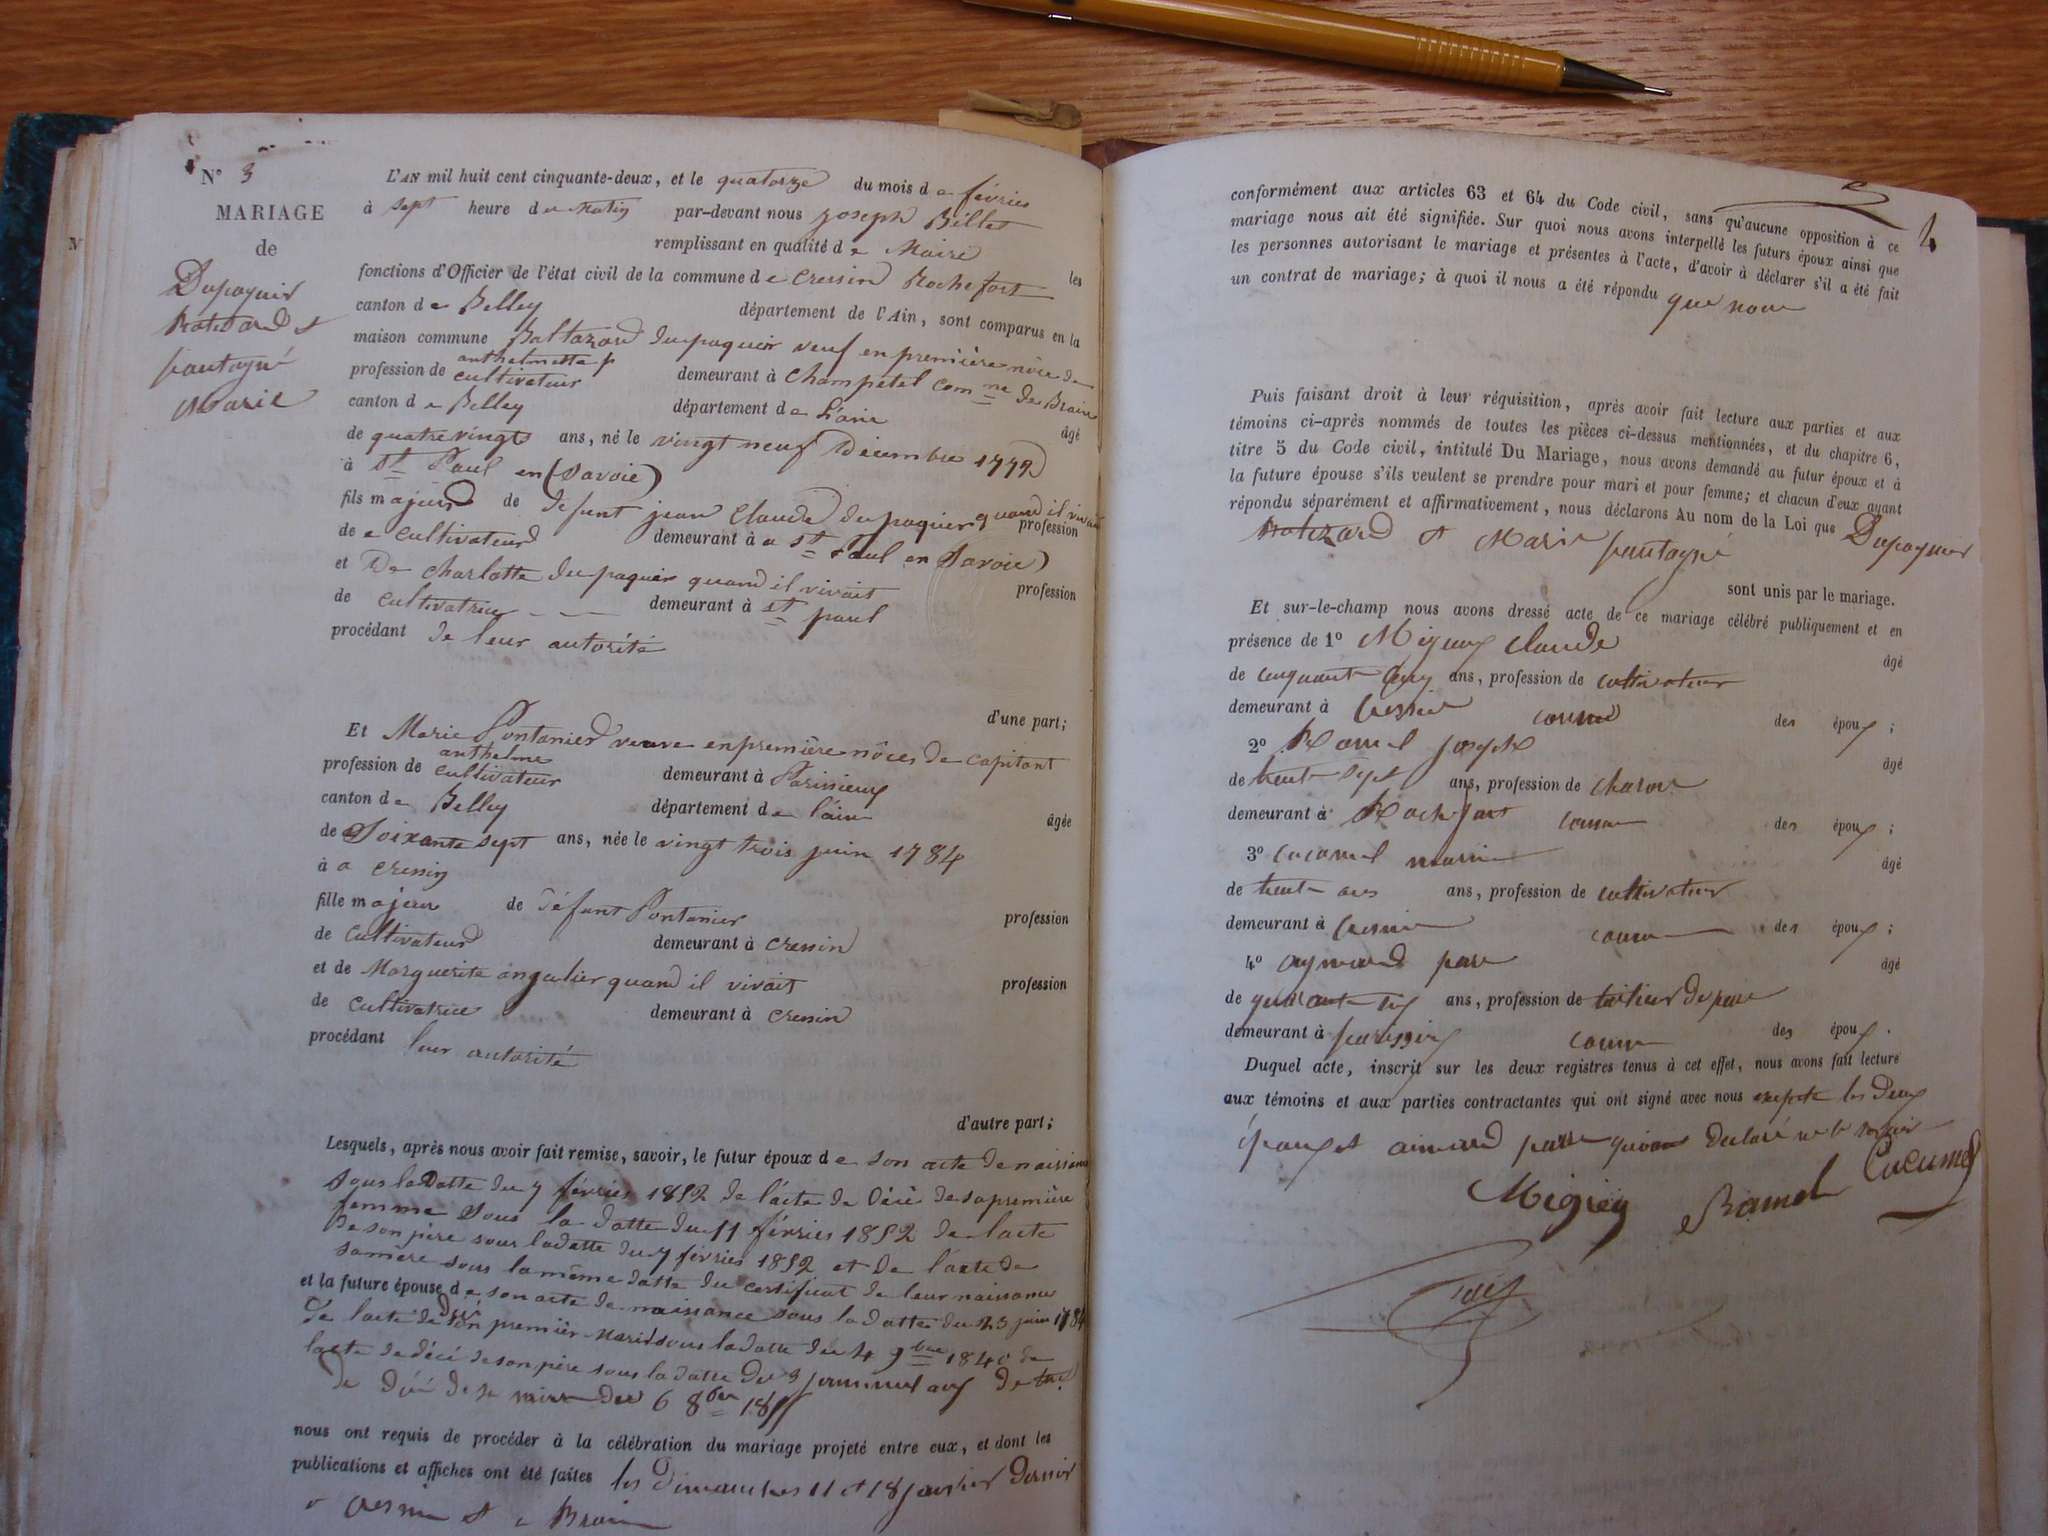 N° 3
MARIAGE
de
Dupaquir
Batezard et
pantagné
Marie
L'AN mil huit cent cinquante-deux, et le quatorze du mois de février
à sept heure du Matin par-devant nous joseph Billet
remplissant en qualité de Maire les
fonctions d'Officier de l'état civil de la commune de Cressin Rochefort
canton de Belley département de l'Ain, sont comparus en la
maison commune Baltazard dupaquier veuf en première nôce de
anthelmette
profession de cultivateur demeurant à Champetel com ne de Brain
canton de Belley département de L'ain âgé
de quatre vingts ans, né le vingt neuf Décembre 1772
à St Paul en (Savoie)
fils majeur de défunt jean Claude dupaquier quand il vivait profession
de cultivateur demeurant à a St Paul en Savoie)
et De Charlotte dupaquier quand il vivait profession
de cultivatrice demeurant à St paul
procédant de leur autorité
d'une part;
Et Marie Pontanier veuve en première nôces de capitant
anthelme
profession de cultivateur demeurant à Parissieux
canton de Belley département de l'ain âgée
de Soixante sept ans, née le vingt trois juin 1784
à a cressin
fille majeur de défunt Pontanier profession
de cultivateur demeurant à cressin
et de Marguerite angelier quand il vivait profession
de cultivatrice demeurant à cressin
procédant leur autorité
d'autre part;
Lesquels, après nous avoir fait remise, savoir, le futur époux de son acte de naissance
sous la Datte du 7 février 1852 de l'acte de Décé de sa première
femme sous la datte du 11 février 1852 de l'acte
de son père sous la datte du 7 février 1852 et de l'acte de
sa mère sous la même datte du certificat de leur naissance
et la future épouse de son acte de naissance sous la datte du 23 juin 1784
de l'acte de décé son premier mari sous la datte du 4 9bre 1840 de
l'acte de décé de son père sous la datte du 3 de
de décé de sa mère du 6 8bre 18
nous ont requis de procéder à la célébration du mariage projeté entre eux, et dont les
publications et affiches ont été faites les Dimanches 11 et 18 janvier dernier
a Cressin et a Brain
4
conformément aux articles 63 et 64 du Code civil, sans qu'aucune opposition à ce
mariage nous ait été signifiée. Sur quoi nous avons interpellé les futurs époux ainsi que
les personnes autorisant le mariage et présentes à l'acte, d'avoir à déclarer s'il a été fait
un contrat de mariage; à quoi il nous a été répondu que non
Puis faisant droit à leur réquisition, après avoir fait lecture aux parties et aux
témoins ci-après nommés de toutes les pièces ci-dessus mentionnées, et du chapitre 6,
titre 5 du Code civil, intitulé Du Mariage, nous avons demandé au futur époux et à
la future épouse s'ils veulent se prendre pour mari et pour femme; et chacun d'eux ayant
répondu séparément et affirmativement, nous déclarons Au nom de la Loi que Dupaquier
Batezard et Marie pantagné
sont unis par le mariage.
Et sur-le-champ nous avons dressé acte de ce mariage célébré publiquement et en
présence de 1° Miguey Claude âgé
de cinquante cinq ans, profession de cultivateur
demeurant à Cressin connu des époux;
2° Ramel joseph âgé
de trente sept ans, profession de charon
demeurant à Rochefort connu des époux;
3° cucumel marin âgé
de trente ans ans, profession de cultivateur
demeurant à Cressin connu des époux;
4° aymard pere âgé
de quarante six ans, profession de tailleur de pere
demeurant à parissieu connu des époux.
Duquel acte, inscrit sur les deux registres tenus à cet effet, nous avons fait lecture
aux témoins et aux parties contractantes qui ont signé avec nous excepte les deux
épouxet aimard pere qui ont declaré ne le savoir
Migrey Ramel Cucumel